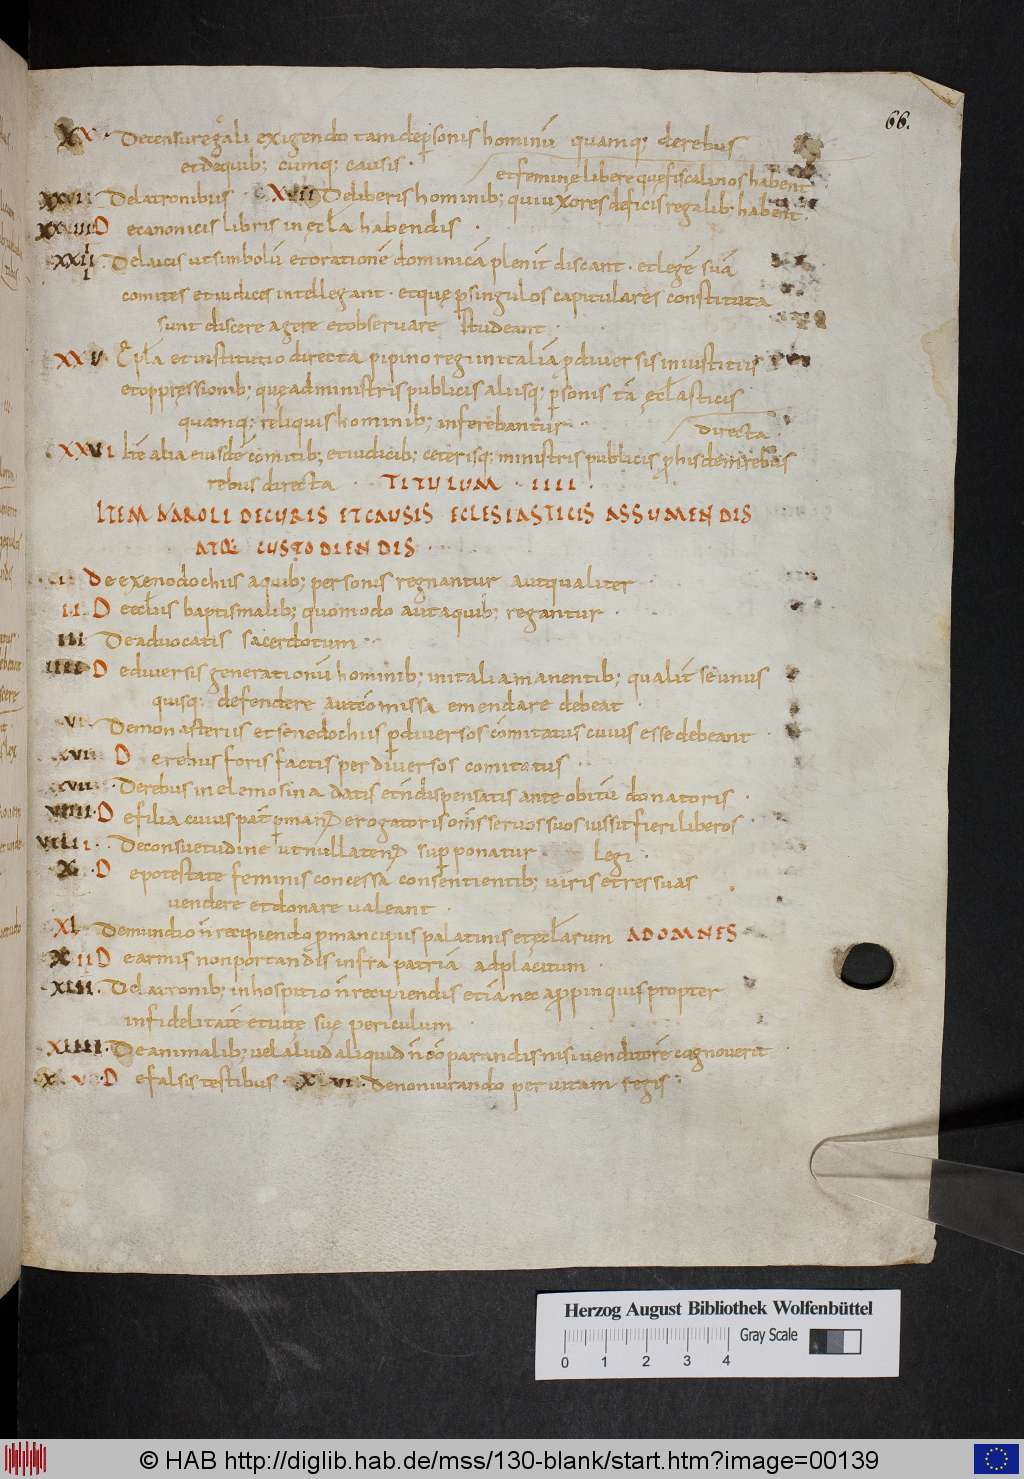 66.
XX · Decensu regali exigendo tam deꝑsonis hominū quamq; derebus
etdequib; cumq; causis ·
et femine libere que fiscalinos habent
XXVII · Delatronibus · XXIII Deliberis hominib; qui uxores deficis regalib; habent ·
XXVIII D ecanonicis libris in ecła habendis ·
XXIII · Delaicis utsimbolū etorationē dominicā plenit discant · etlegē suā
comites etiudices intellegant · etque ꝑsingulos capitulares constituta
sunt discere agere etobservare studeant ·
XXV Epła etinstitutio directa pipino regi initaliā ꝓ diuersis iniustitiis
etoppressionib; queadministris publicis aliisq; ꝑsonis tā ecłasticis
quamq; reliquis hominib; inferebantur ·
directa
XXVI Itē alia eiusdē comitib; etiudicib; ceterisq; ministris publicis ꝓ hisdem rebus
rebus directa · TITULUM · IIII ·
ITEM KAROLI DECURIS ETCAUSIS ECLESIASTICIS ASSUMENDIS
ATQ; CUSTODIENDIS ·
I · De exenodochiis aquib; personis regnantur autqualiter ·
II · D eecłiis baptismalib; quomodo autaquib; regantur ·
III · Deadvocatis sacerdotum ·
IIII · D ediuersis generationū hominib; initalia manentib; qualit seunus
quisq; defendere autcōmissa emendare debeat ·
VI · Demonasteriis etsenodochiis ꝑ diuersos comitatus cuius essedebeant ·
XVII · D erebus foris factis per diuersos comitatus ·
XVII · Derebus in elemosina datis et n dispensatis ante obitū donatoris ·
VIIII · D efilia cuius pat ꝑ man erogatoris oms servos suos iussit fieri liberos ·
VIIII · Deconsuetudine ut nullaten supponatur legi ·
X · D epotestate feminis concessa consentientib; uiris et res suas
uendere etdonare ualeant ·
XI · Demundio n recipiendo ꝓ mancipiis palatinis et ecłarum AD OMNES
XII D earmis nonportandis infra patriā adplacitum ·
XIII · Delatronib; inhospitio n recipiendis etiā nec a propinquis propter
infidelitatē etuite sue periculum ·
XIIII · Deanimalib; uel aliud aliquid n cōparandis nisi uenditorē cognouerit ·
XV · D efalsis testibus · XVI · Denoniurando per uitam regis ·
Herzog August Bibliothek Wolfenbüttel
Gray Scale
0 1 2 3 4
© HAB http://diglib.hab.de/mss/130-blank/start.htm?image=00139